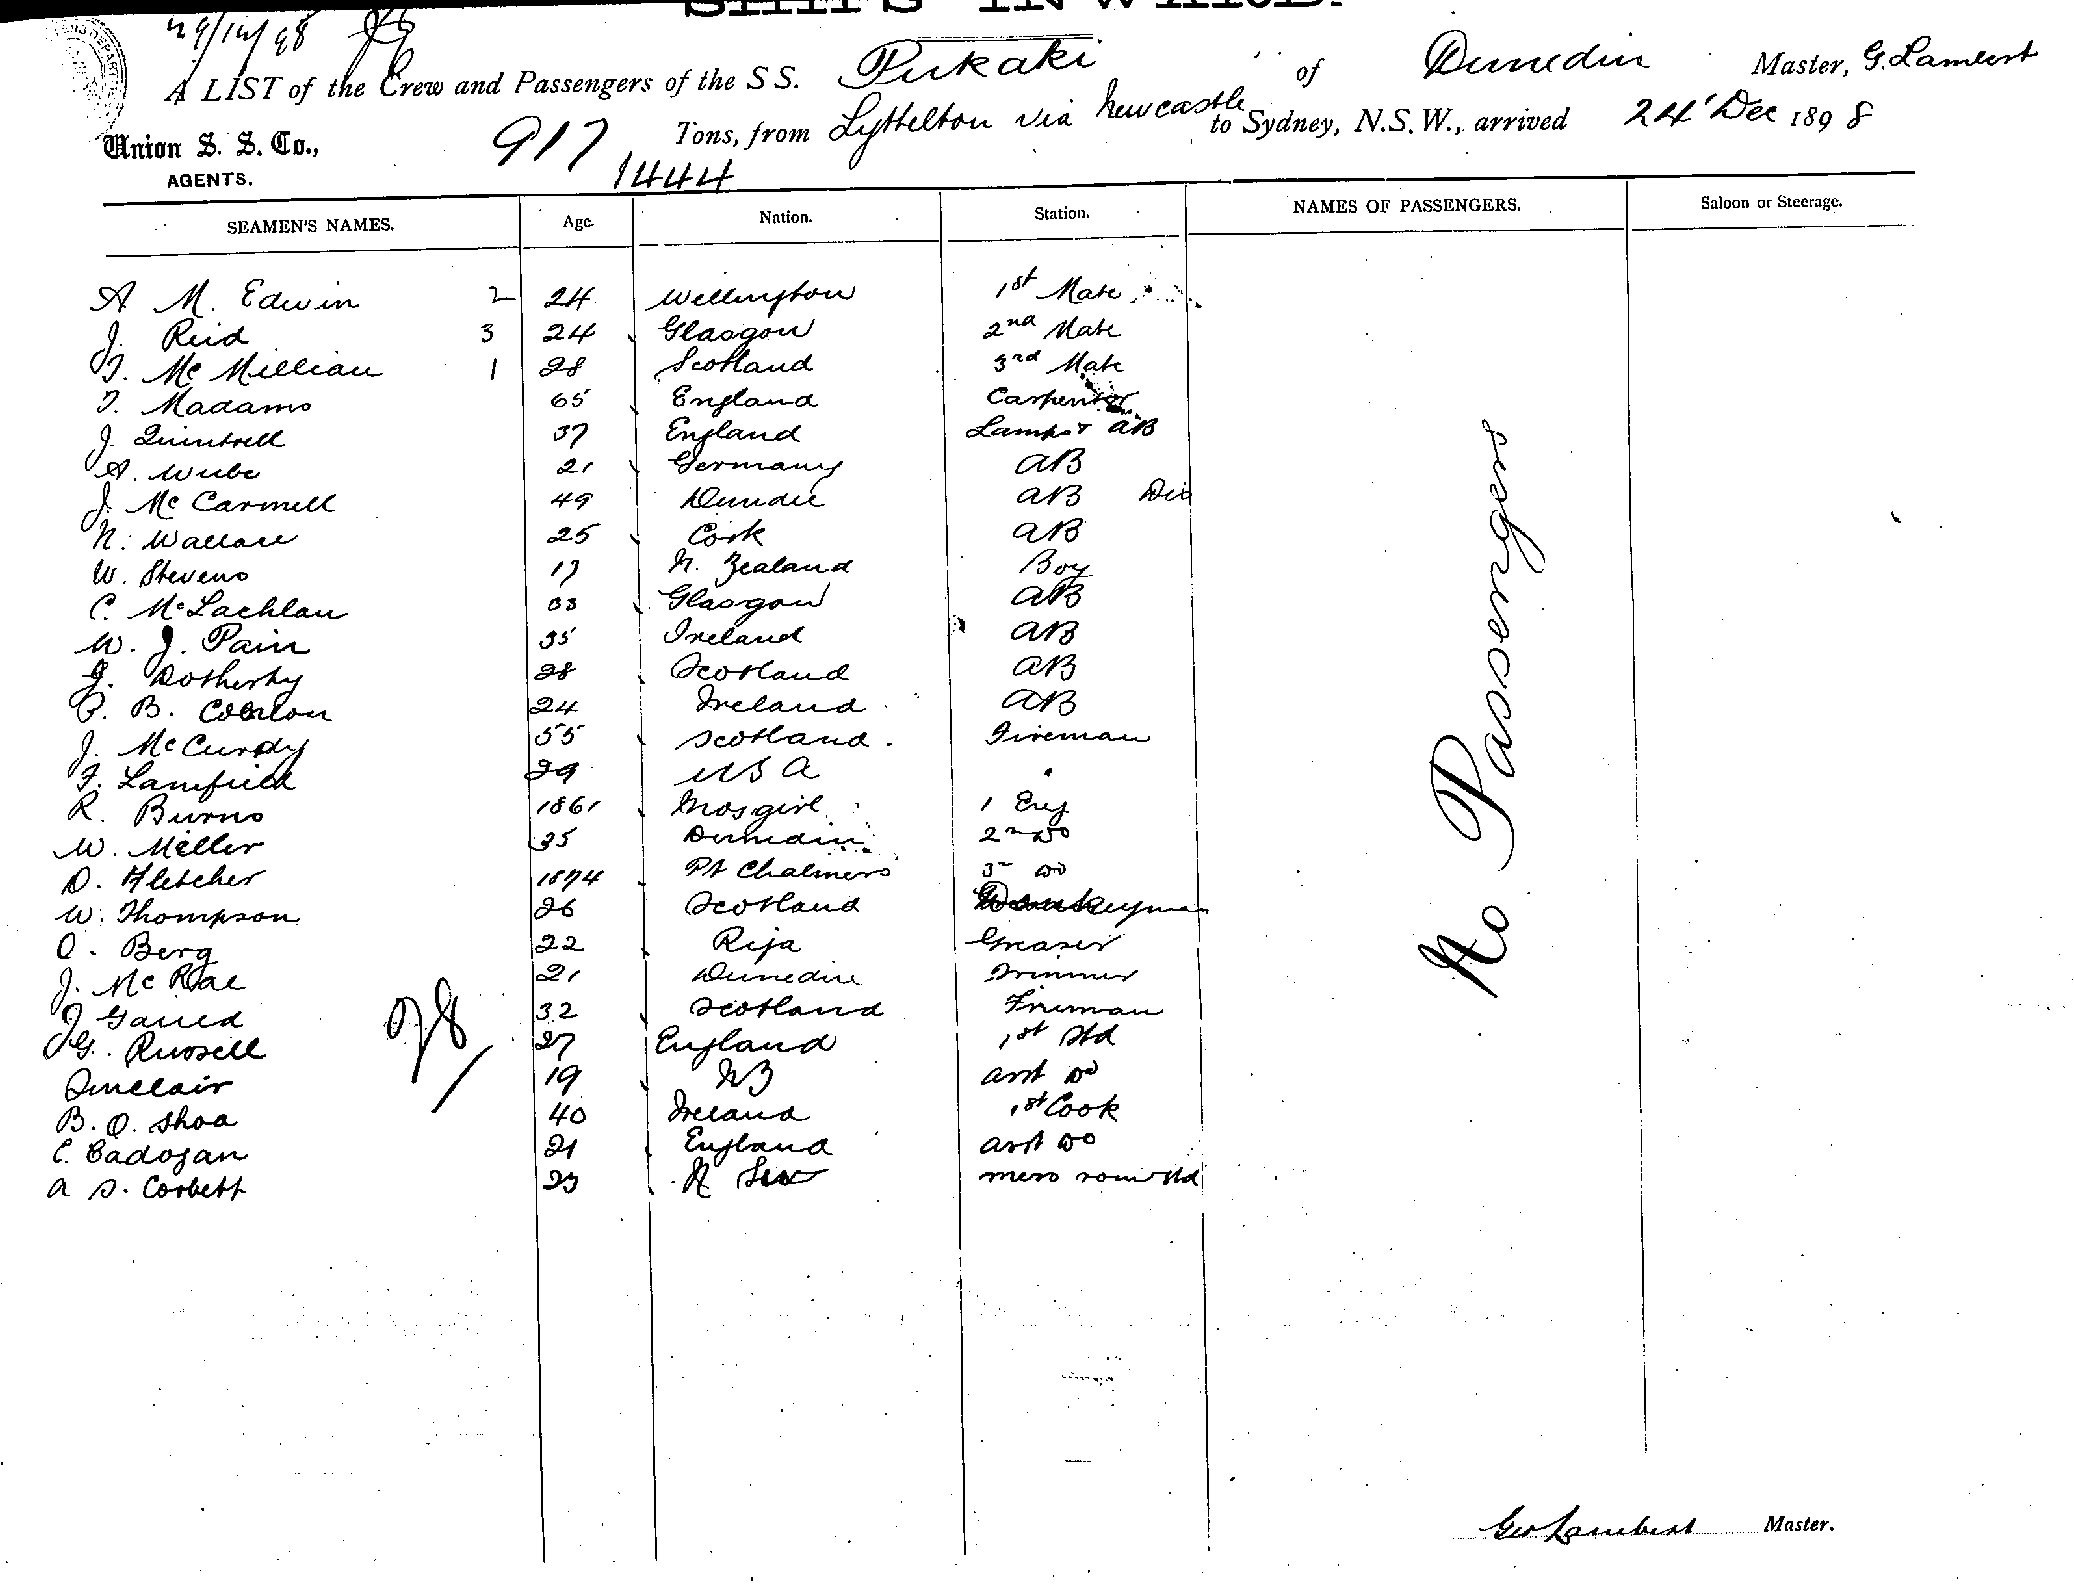 SHIPS INWARD.
29/12/98
A LIST of the Crew and Passengers of the SS. Pukaki of Dunedin Master, G. Lambert
917 Tons, from Lyttelton via Newcastle to Sydney, N.S.W., arrived 24 Dec 1898
Union S. S. Co.,
AGENTS.
1444
SEAMEN'S NAMES. Age. Nation. Station. NAMES OF PASSENGERS. Saloon or Steerage.
A M. Edwin 2 24 Wellington 1st Mate
J. Reid 3 24 Glasgow 2nd Mate
McMillian 1 28 Scotland 3rd Mate
T. Madams 65 England Carpenter
J. Quintrell 37 England Lamps & AB
A. Wiebe 21 Germany AB
J. McCarmell 49 Dundee AB Dis
N. Wallace 25 Cork AB
W. Stevens 17 N. Zealand Boy
C. McLachlan 33 Glasgow AB
W. J. Pain 35 Ireland AB
J. Dotherty 28 Scotland AB
P. B. 24 Ireland AB
J. McCurdy 55 Scotland. Fireman
F. Lamfield 29 USA "
R. Burns 1861 Mosgiel 1 Eng
W. Miller 35 Dunedin 2nd Do
D. Fletcher 1874 Pt Chalmers 3rd Do
W. Thompson 26 Scotland Donkeyman
O. Berg 22 Riga Greaser
J. McRae 21 Dunedin Trimmer
J 32 Scotland Fireman
G. Russell 27 England 1st Std
Sinclair 19 NZ asst Do
B. O. Shea 40 Ireland 1st Cook
C. Cadogan 21 England asst Do
A S. Corbett 23 mess room Std
28
No Passengers
Geo Lambert Master.